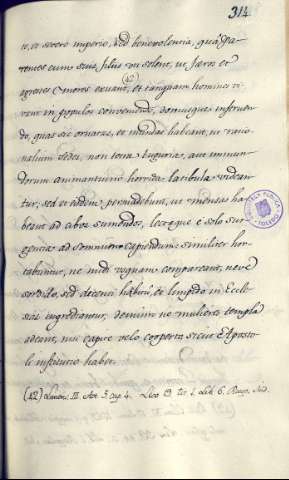 314
te, et severo imperio, sed benevolentia, qua Pa-
rentes cum suis filiis uti solent, ut feros et
agrestes mores exuant, (42) et tanquam homines vi-
vant in populos convenientes, domusque instruen-
do, quas sic ornatas, et mundas habeant, ut ratio-
nalium sedes, non tetra tuguria, aut immun-
dorum animantium horrida latibula videan-
tur, sed et eisdem persuadebunt, ut mensas ha-
beant ad cibos sumendos, lectosque è solo sur-
gentes ad somnum capiendum: similiter hor-
tabuntur, ne nudi usquam compareant, neve
sordido, sed decenti habitu, et limpido in Eccle-
sias ingrediantur, demum ne mulieres templa
adeant, nisi capite velo cooperto, sicut Aposto-
li institutio habet.
(42) Act. 5. cap. 4. 13. tit. 1. Lib. 6. Ind.